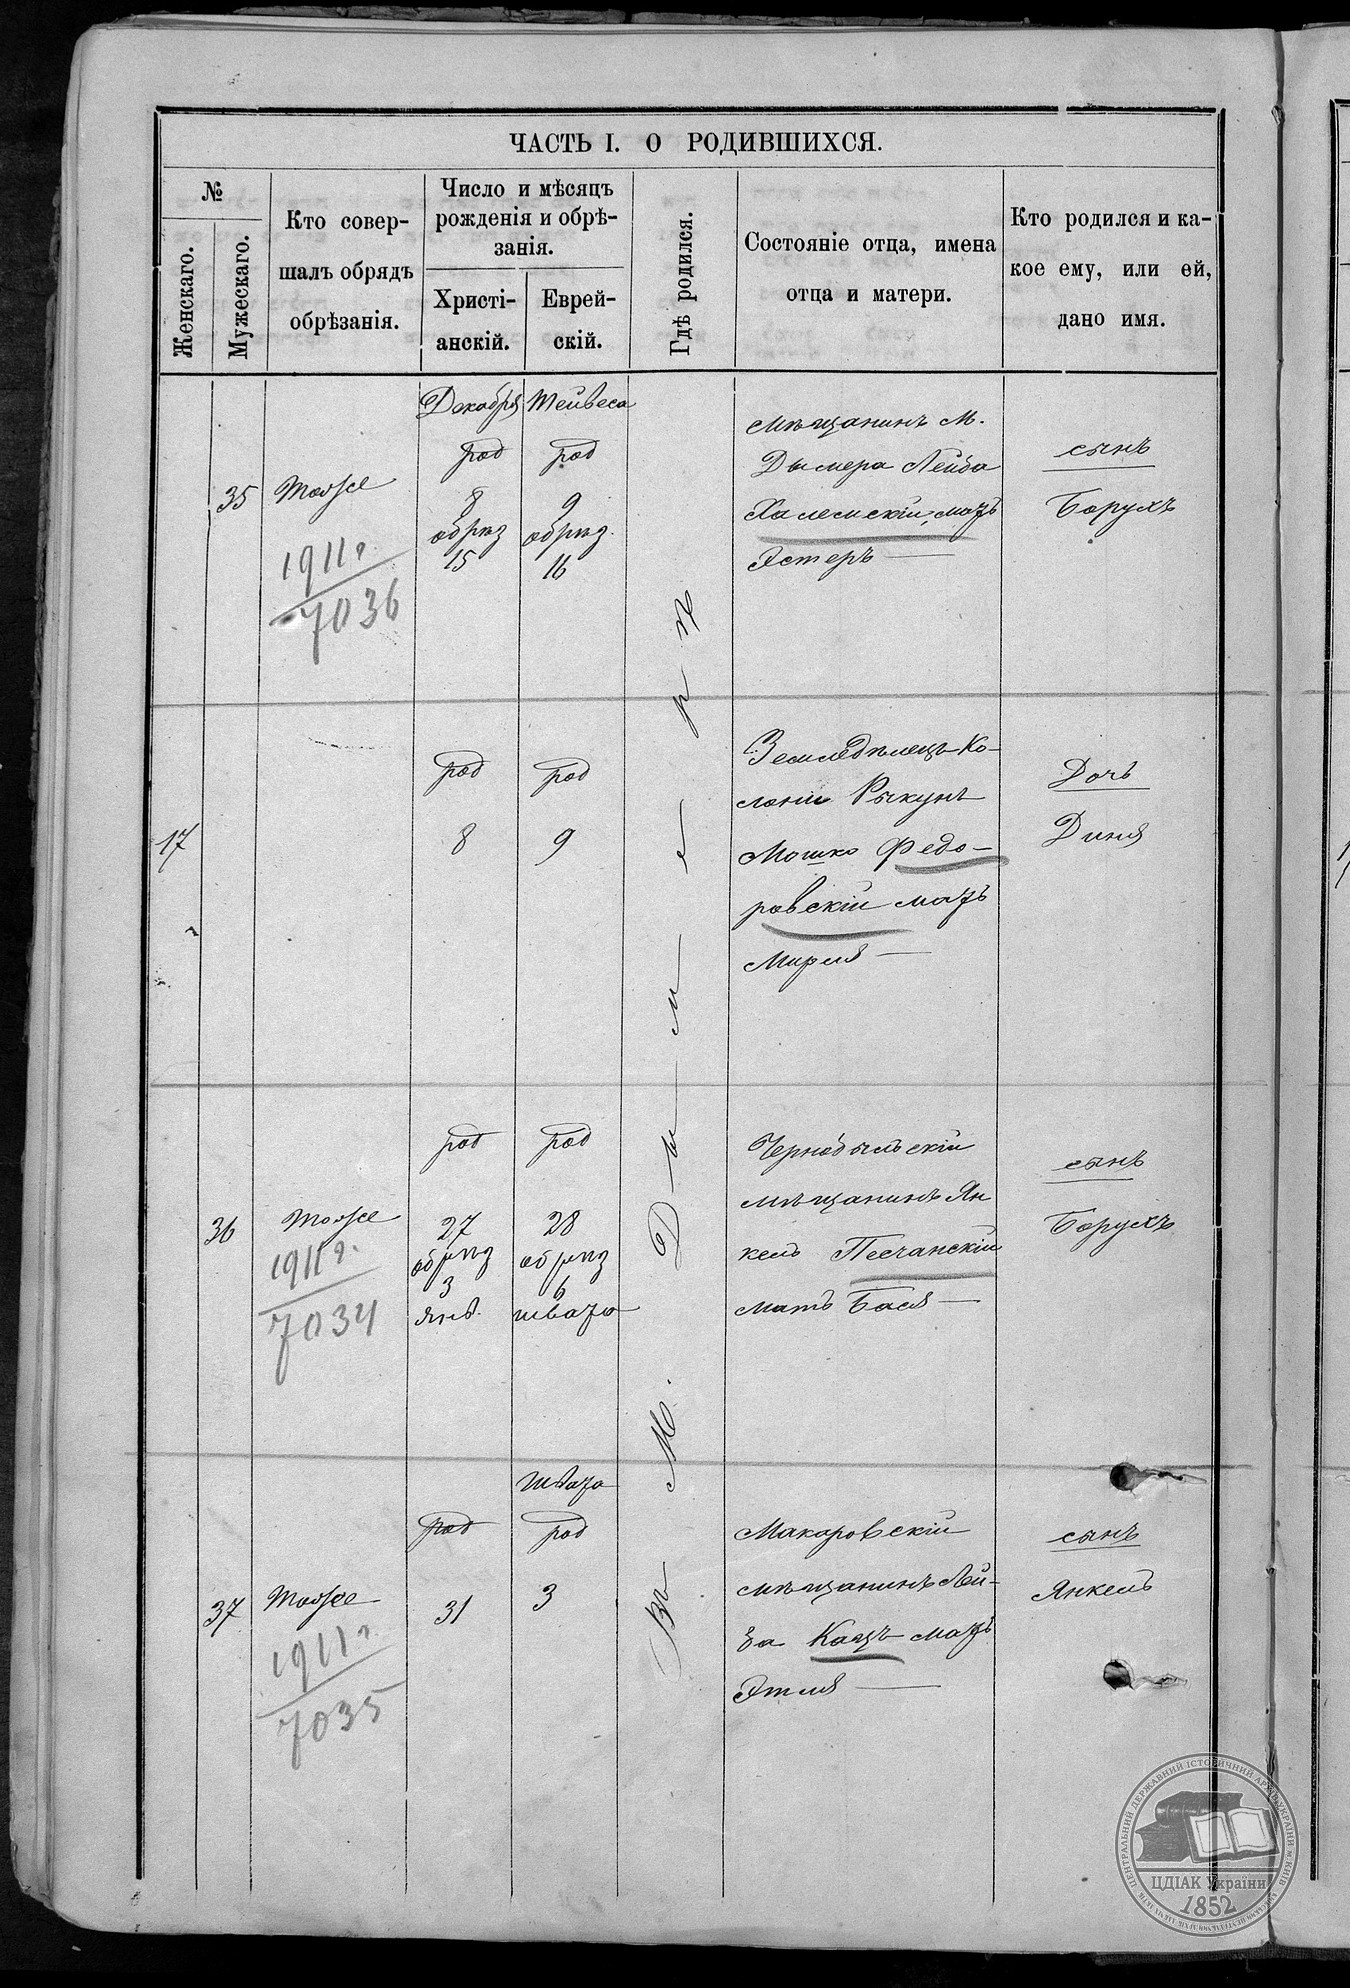 ЧАСТЬ I. О РОДИВШИХСЯ.
№
Женскаго.
Мужескаго.
Кто совер-
шалъ обрядъ
обрѣзанія.
Число и мѣсяцъ
рожденія и обрѣ-
занія.
Христі-
анскій.
Еврей-
скій.
Гдѣ родился.
Состояніе отца, имена
отца и матери.
Кто родился и ка-
кое ему, или ей,
дано имя.
35
1911 г.
7036
Декабря
род
8
обрѣз
15
Тейвеса
род
9
обрѣз.
16
Въ М. Дымерѣ
мѣщанинъ М.
Дымера Лейба
Халемскій, мать
Эстеръ —
сынъ
Борухъ
17
род
8
род
9
Земледѣлецъ Ко-
лоніи Рыкунь
Мошко Федо-
ровскій мать
Мирля —
Дочь
Диня
36
1911 г.
7034
род
27
обрѣз
3
янв.
род
28
обрѣз
6
швато
Чернобыльскій
мѣщанинъ Ян
кель Песчанскій
мать Бася —
сынъ
Борухъ
37
1911 г.
7035
род
31
швато
род
3
Макаровскій
мѣщанинъ Лей-
ба Кацъ мать
Этля —
сынъ
Янкель
ЦЕНТРАЛЬНИЙ ДЕРЖАВНИЙ ІСТОРИЧНИЙ АРХІВ УКРАЇНИ М. КИЇВ
ЦДІАК України
1852